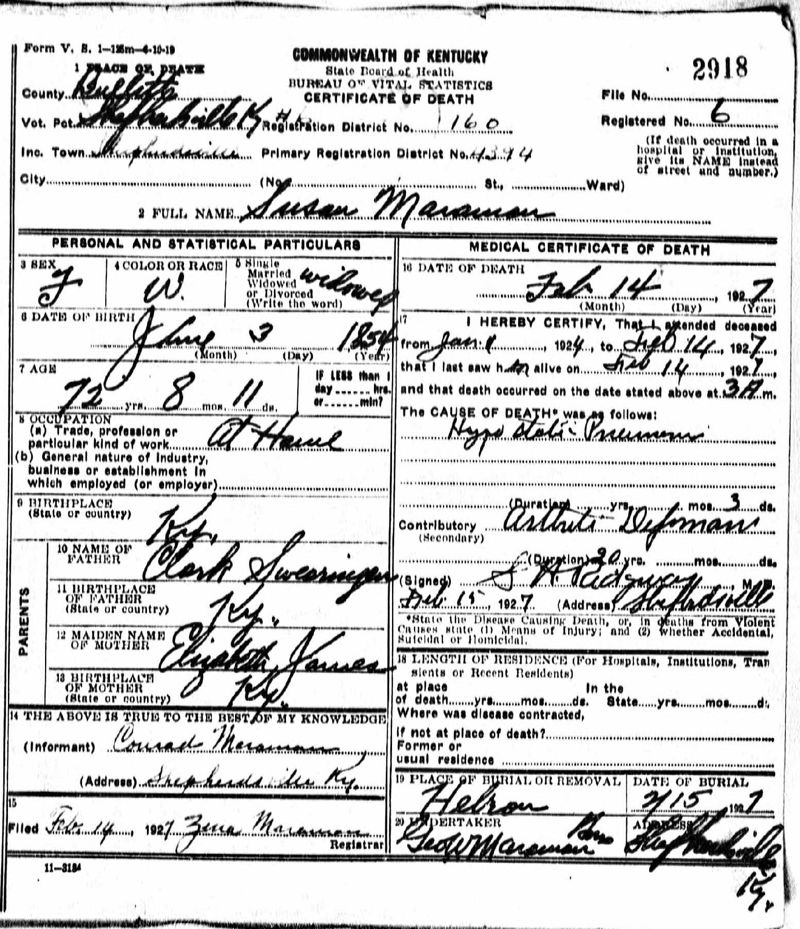 Form V. S. 1-125m-4-10-19
COMMONWEALTH OF KENTUCKY
State Board of Health
BUREAU OF VITAL STATISTICS
CERTIFICATE OF DEATH
2918
1 PLACE OF DEATH
County Bullitt
File No.
Vot. Pct. Shepherdsville Ky Registration District No. 160
Registered No. 6
Inc. Town Shepherdsville Primary Registration District No. 4394
(If death occurred in a hospital or institution, give its NAME instead of street and number.)
City (No. St., Ward)
2 FULL NAME Susan Maraman
PERSONAL AND STATISTICAL PARTICULARS
3 SEX F
4 COLOR OR RACE W.
5 Single Married Widowed or Divorced (Write the word) widowed
6 DATE OF BIRTH June 3 1854
(Month) (Day) (Year)
7 AGE
72 yrs. 8 mos. 11 ds.
IF LESS than 1
day hrs.
or min?
8 OCCUPATION
(a) Trade, profession or
particular kind of work At Home
(b) General nature of industry,
business or establishment in
which employed (or employer)
9 BIRTHPLACE
(State or country) Ky.
PARENTS
10 NAME OF FATHER Clark Swearingen
11 BIRTHPLACE OF FATHER (State or country) Ky.
12 MAIDEN NAME OF MOTHER Elizabeth James
13 BIRTHPLACE OF MOTHER (State or country) Ky.
14 THE ABOVE IS TRUE TO THE BEST OF MY KNOWLEDGE
(Informant) Conrad Maraman
(Address) Shepherdsville Ky.
15
Filed Feb 14, 1927 Zena Maraman
Registrar
11-3184
MEDICAL CERTIFICATE OF DEATH
16 DATE OF DEATH
Feb 14, 1927
(Month) (Day) (Year)
17 I HEREBY CERTIFY, That I attended deceased
from Jan 1924, to Feb 14, 1927,
that I last saw her alive on Feb 14, 1927
and that death occurred on the date stated above at 3 A m.
The CAUSE OF DEATH* was as follows:
Hypostatic Pneumonia
(Duration) yrs. mos. 3 ds.
Contributory Arthritis Deformans
(Secondary)
(Duration) 20 yrs. mos. ds.
(Signed) S. H. Ridgway, M. D.
Feb 15, 1927 (Address) Shepherdsville
*State the Disease Causing Death, or, in deaths from Violent
Causes state (1) Means of Injury; and (2) whether Accidental,
Suicidal or Homicidal.
18 LENGTH OF RESIDENCE (For Hospitals, Institutions, Tran
sients or Recent Residents)
at place In the
of death yrs. mos. ds. State yrs. mos. d
Where was disease contracted,
if not at place of death?
Former or
usual residence
19 PLACE OF BURIAL OR REMOVAL DATE OF BURIAL
Hebron 2/15 1927
20 UNDERTAKER ADDRESS
Geo W Maraman Shepherdsville
Ky.